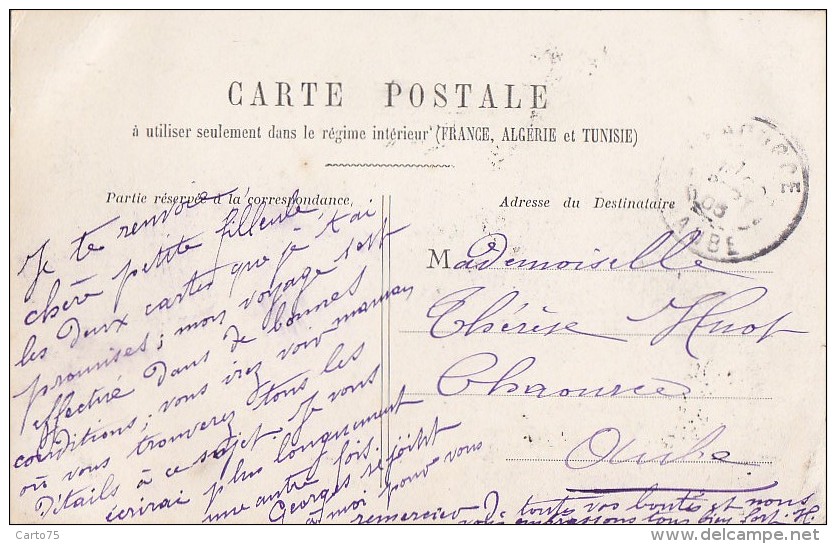 CARTE POSTALE
à utiliser seulement dans le régime intérieur (FRANCE, ALGÉRIE et TUNISIE)
Partie réservée à la correspondance.
Adresse du Destinataire
CHAOURCE
05
AUBE
Je te renvoie
chère petite filleule,
les deux cartes que je t'ai
promises ; mon voyage s'est
effectué dans de bonnes
conditions ; vous irez voir maman
où vous trouverez tous les
détails à ce sujet. Je vous
écrirai plus longuement
une autre fois.
Georges se joint
à moi pour vous
remercier de toutes vos bontés et nous
vous embrassons tous bien fort. H.
Mademoiselle
Thérèse Huot
Chaource
Aube
Carto75
www.delcampe.net